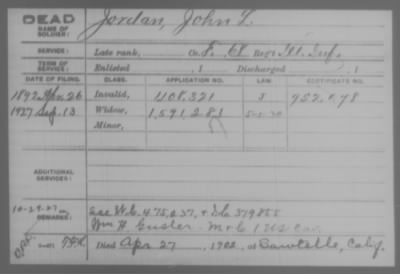 DEAD
NAME OF SOLDIER: Jordan, John L.
SERVICE: Late rank, Co. F. 68 Reg't Ill. Inf.
TERM OF SERVICE: Enlisted , 1 Discharged , 1
DATE OF FILING. CLASS. APPLICATION NO. LAW. CERTIFICATE NO.
1892 Apr. 26 Invalid, 1108,321 J 952.078
1927 Sep. 13 Widow, 1,591,281
Minor,
ADDITIONAL SERVICES:
REMARKS: See W.C. 475,237, & I.C. 379855
Wm H. Gusler. 1 US Cav.
Died Apr 27, 1902, at Sawtelle, Calif.